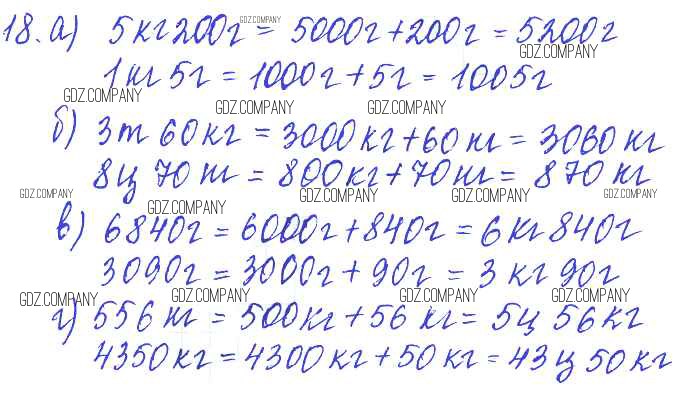 18. а) 5 кг 200 г = 5000 г + 200 г = 5200 г
1 кг 5 г = 1000 г + 5 г = 1005 г
б) 3 т 60 кг = 3000 кг + 60 кг = 3060 кг
8 ц 70 кг = 800 кг + 70 кг = 870 кг
в) 6840 г = 6000 г + 840 г = 6 кг 840 г
3090 г = 3000 г + 90 г = 3 кг 90 г
г) 556 кг = 500 кг + 56 кг = 5 ц 56 кг
4350 кг = 4300 кг + 50 кг = 43 ц 50 кг
GDZ.COMPANY
GDZ.COMPANY
GDZ.COMPANY
GDZ.COMPANY GDZ.COMPANY
GDZ.COMPANY GDZ.COMPANY GDZ.COMPANY GDZ.COMPANY
GDZ.COMPANY
GDZ.COMPANY GDZ.COMPANY GDZ.COMPANY GDZ.COMPANY